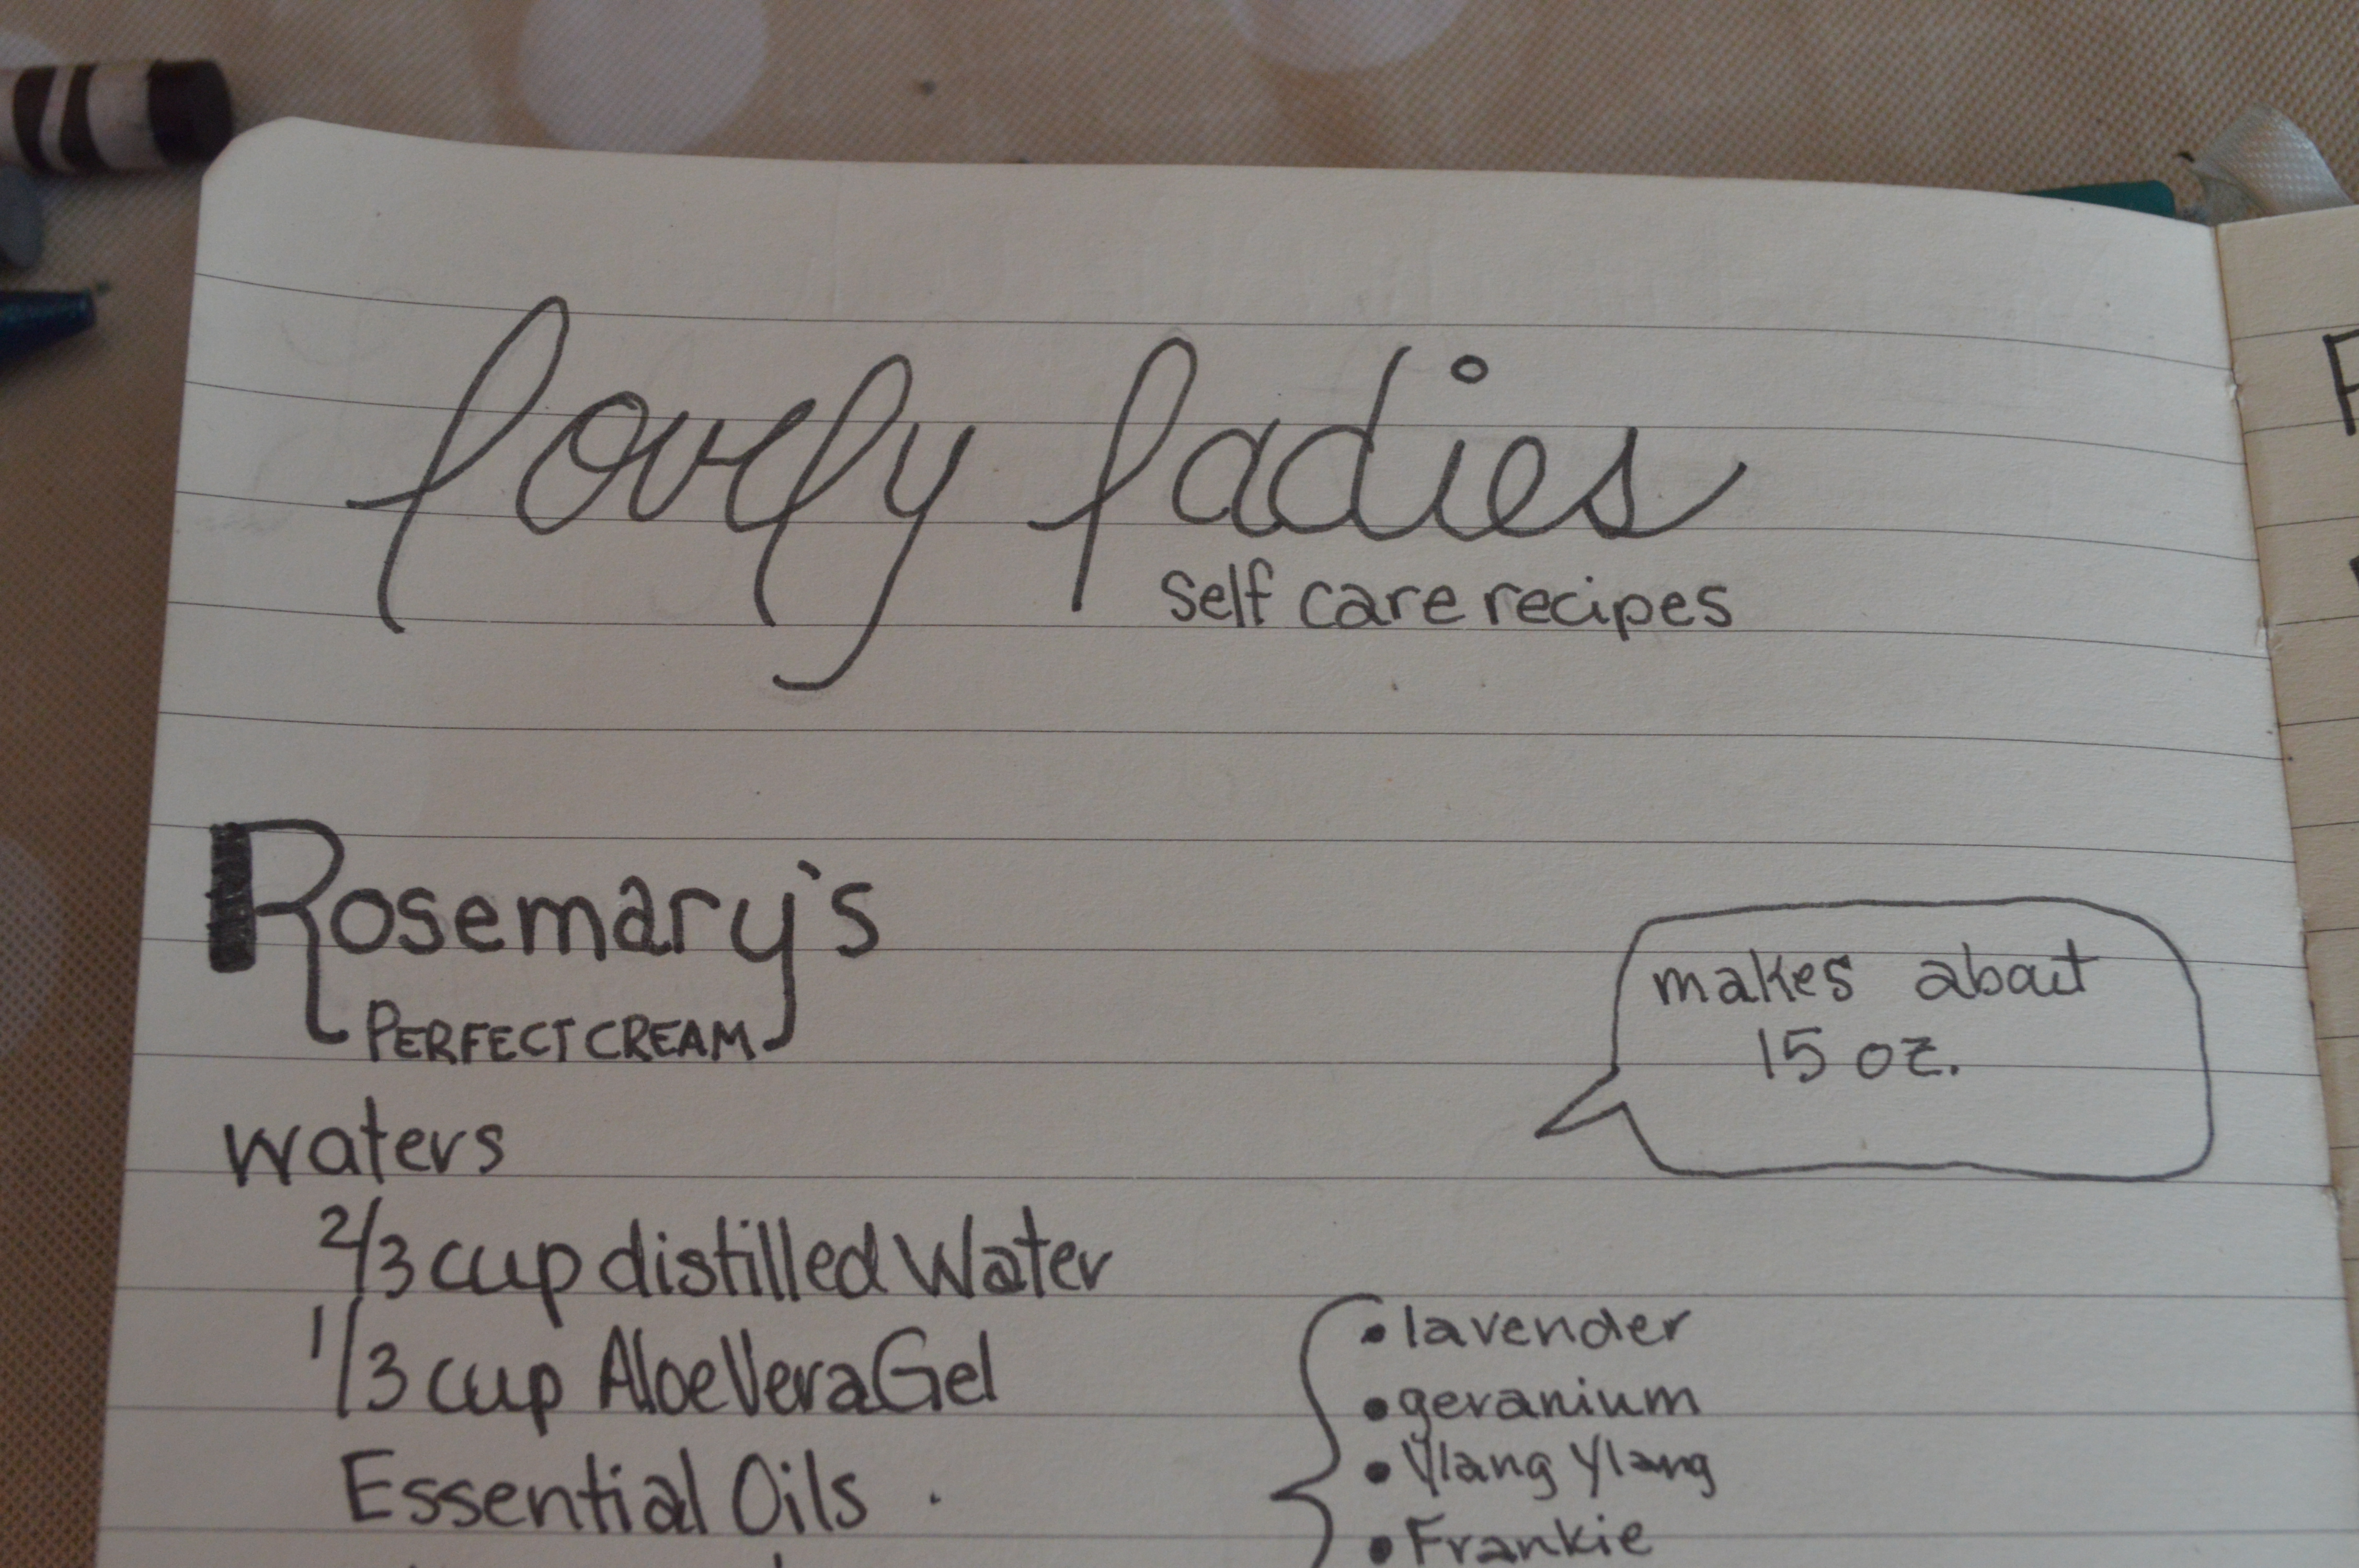 lovely ladies
self care recipes
Rosemary's
PERFECT CREAM
makes about
15 oz.
waters
2/3 cup distilled Water
1/3 cup Aloe Vera Gel
Essential Oils
• lavender
• geranium
• Ylang Ylang
• Frankie